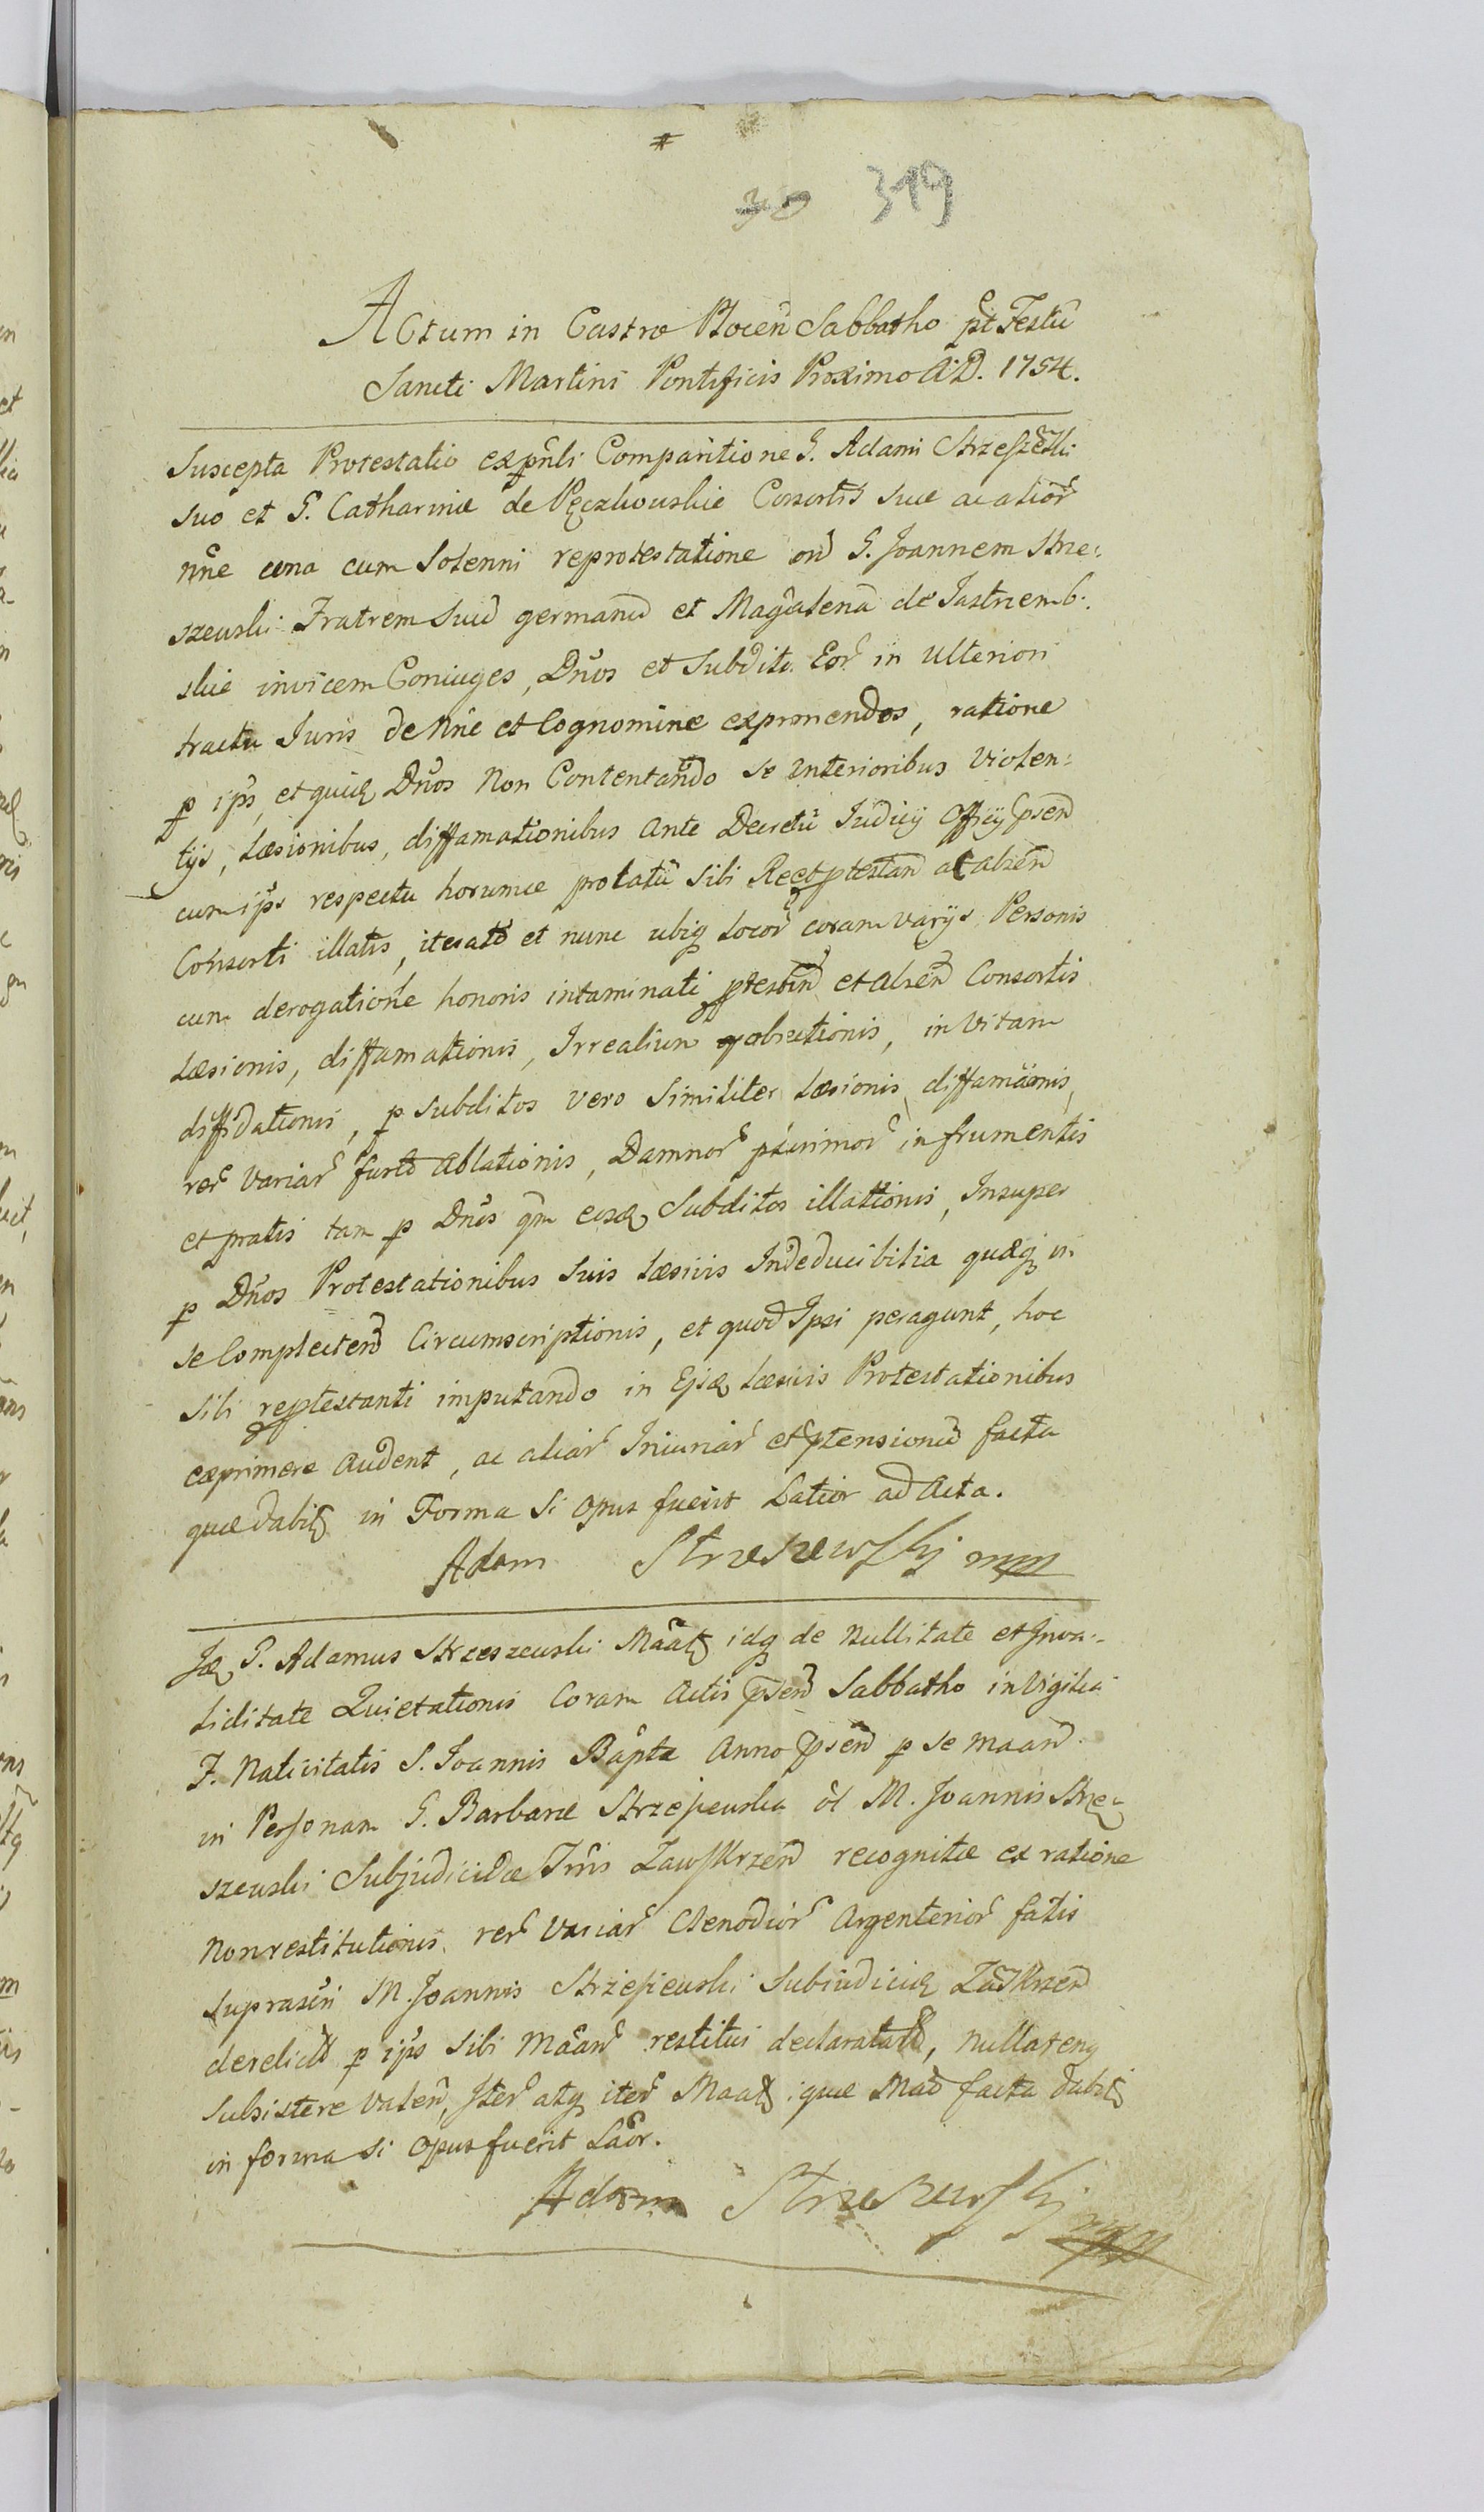 30 319
Actum in Castro Plocen Sabbatho pt Festu
Sancti Martini Pontificis Proximo A.D. 1754.
Suscepta Protestatio ex pnli Comparitione G. Adami Strzeszewski
suo et G. Catharinæ de Pęczkowskie Consortis suæ ac alior
nne una cum Solenni reprotestatione on G. Joannem Strze:
szewski Fratrem Suu germanu et Magdalena de Jastrzemb:
skie invicem Coniuges, Dnos et Subditos Eor in Ulteriori
tractu Juris de Nne et Cognomine exprimendos, ratione
p ips, et quidę Dnos Non Contentando se anterioribus Violen:
tijs, Læsionibus, diffamationibus Ante Decretu Judicij Officij psen
cum ips respectu horumce prolatu Sibi Reptestan ac absen
Consorti illatis, iterato et nunc ubiq locor coram varijs Personis
cum derogatione honoris intaminati ptestin et absen Consortis
Læsionis, diffamationis, Irrealium objectionis, in Vitam
diffidationis, p subditos vero Similiter Læsionis, diffamaonis,
rer Variar furto Ablationis, Damnor plurimor in frumentis
et pratis tam p Dnos qm eosdę Subditos illationis, Insuper
p Dnos Protestationibus Suis Læsivis Indeducibilia quæq in
se Complecten Circumscriptionis, et quod Ipsi peragunt, hoc
sibi reptestanti imputando in Ejsdę Læsivis Protestationibus
exprimere Audent, ac aliar Iniuriar et ptensionu facta
quæ dabitę in Forma Si Opus fuerit Latior ad Acta.
Adam Strzeszewskj mpp
Idę G. Adamus Strzeszewski Maatę idq de Nullitate et Inva:
liditate Quietationis Coram Actis psen Sabbatho in Vigilia
F. Nativitatis S. Joannis Bapta Anno psen p se maan
in Personam G. Barbaræ Strzeszewska ol M. Joannis Strze:
szewski Subjudicidæ Tris Zawskrzen recognitæ ex ratione
Nonrestitutionis rer Variar Clenodior Argenterior fatis
suprascri M. Joannis Strzeszewski Subiudicis Zawkrzen
derelict p ips sibi Maan restitui declarata, nullateng
subsistere valen, Iter atq iter Maatę quæ Mao facta dabitę
in forma si Opus fuerit Laor.
Adam Strzeszewskj mpp